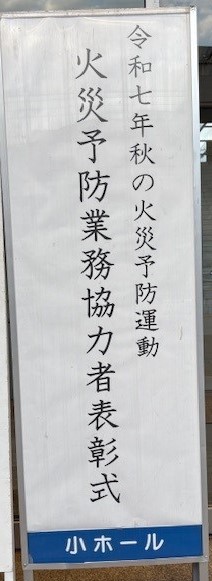 令和七年秋の火災予防運動
火災予防業務協力者表彰式
小ホール